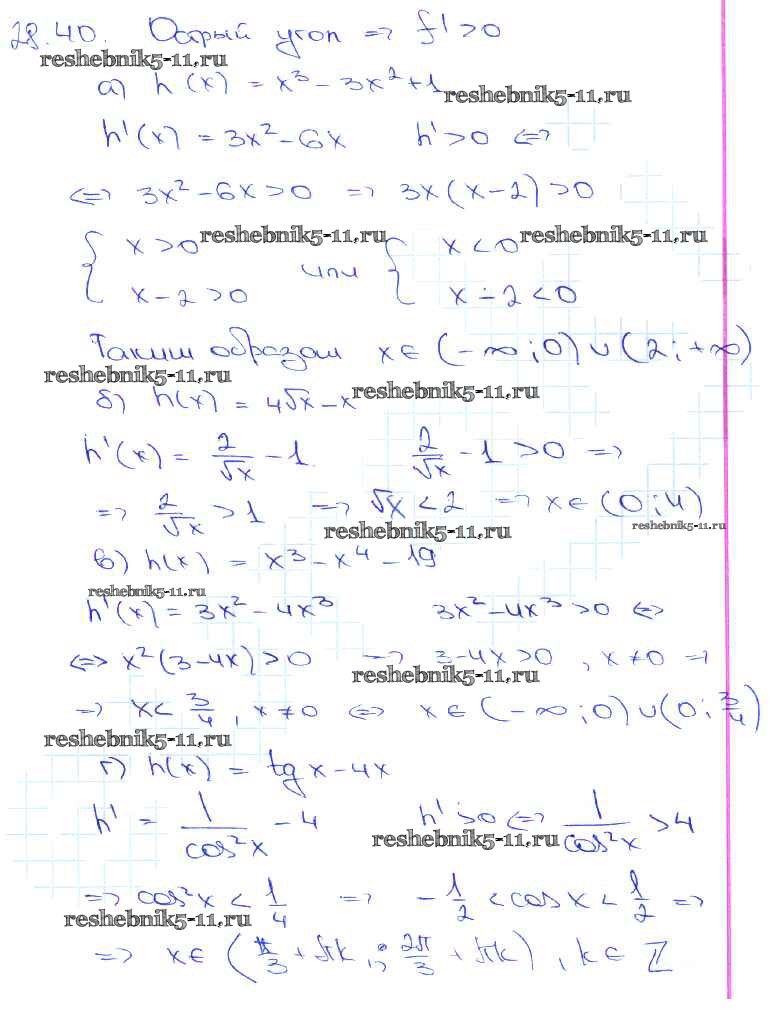 28.40. Острый угол => f' > 0
reshebnik5-11.ru
а) h(x) = x³ - 3x² + 1
reshebnik5-11.ru
h'(x) = 3x² - 6x h' > 0 <=>
<=> 3x² - 6x > 0 => 3x(x-2) > 0
{ x > 0 reshebnik5-11.ru { x < 0 reshebnik5-11.ru
или
x - 2 > 0 x - 2 < 0
Таким образом x ∈ (-∞; 0) ∪ (2; +∞)
reshebnik5-11.ru
б) h(x) = 4√x - x reshebnik5-11.ru
h'(x) = 2/√x - 1 2/√x - 1 > 0 =>
=> 2/√x > 1 => √x < 2 => x ∈ (0; 4)
reshebnik5-11.ru reshebnik5-11.ru
в) h(x) = x³ - x⁴ - 19
reshebnik5-11.ru
h'(x) = 3x² - 4x³ 3x² - 4x³ > 0 <=>
<=> x²(3-4x) > 0 => 3-4x > 0, x ≠ 0 =>
reshebnik5-11.ru
=> x < 3/4, x ≠ 0 <=> x ∈ (-∞; 0) ∪ (0; 3/4)
reshebnik5-11.ru
г) h(x) = tg x - 4x
h' = 1/cos²x - 4 h' > 0 <=> 1/cos²x > 4
reshebnik5-11.ru
=> cos²x < 1/4 => -1/2 < cos x < 1/2 =>
reshebnik5-11.ru
=> x ∈ (π/3 + πk; 2π/3 + πk), k ∈ Z